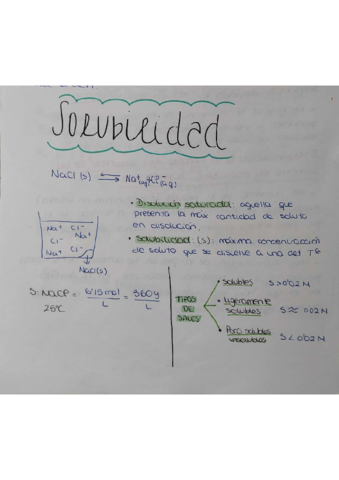 Solubilidad
NaCl (s) ⇌ Na⁺(aq) + Cl⁻(aq)
• Disolución saturada: aquella que
presenta la máx cantidad de soluto
en disolución.
• Solubilidad: (s): máxima concentración
de soluto que se disuelve a una det Tª
Na⁺ Cl⁻
Cl⁻ Na⁺
Na⁺ Cl⁻
NaCl(s)
S: NaCl = 6'15 mol / L = 360 g / L
25ºC
TIPOS
DE
SALES
• solubles S > 0'02 M
• Ligeramente
solubles S ≈ 0'02 M
• Poco solubles
insolubles S < 0'02 M